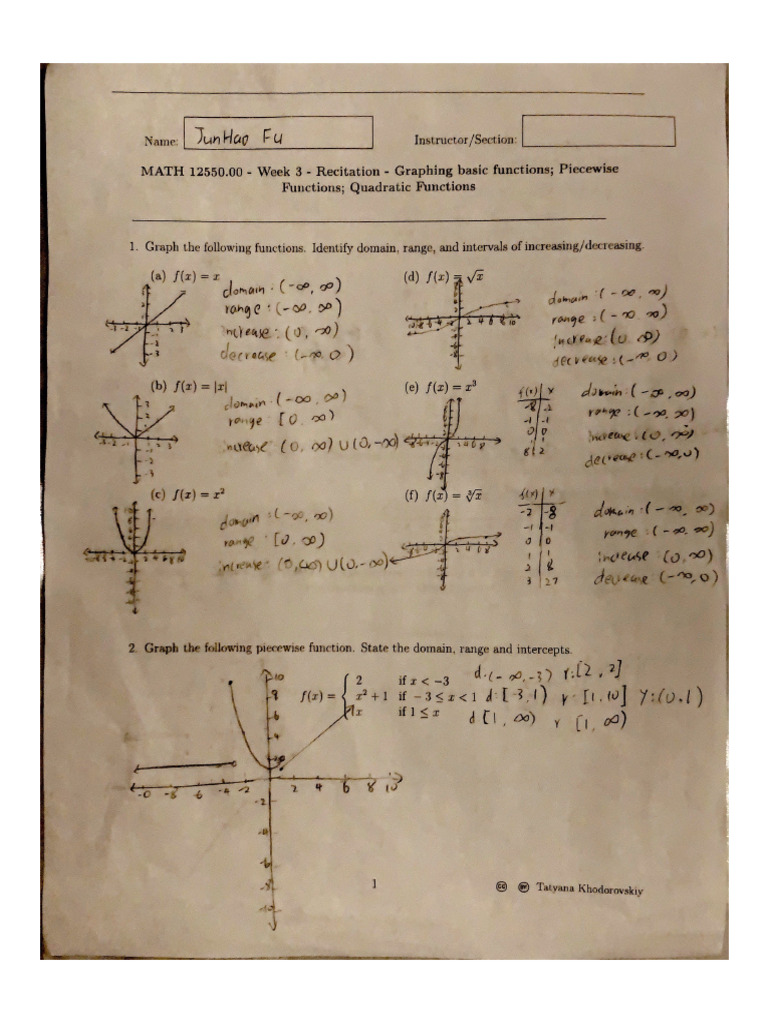 Name: JunHao Fu Instructor/Section:
MATH 12550.00 - Week 3 - Recitation - Graphing basic functions; Piecewise
Functions; Quadratic Functions
1. Graph the following functions. Identify domain, range, and intervals of increasing/decreasing.
(a) f(x) = x
domain : (-∞, ∞)
range : (-∞, ∞)
increase : (0, ∞)
decrease : (-∞, 0)
(d) f(x) = √x
domain : (-∞, ∞)
range : (-∞, ∞)
increase : (0, ∞)
decrease : (-∞, 0)
(b) f(x) = |x|
domain : (-∞, ∞)
range : [0, ∞)
increase (0, ∞) ∪ (0, -∞)
(e) f(x) = x³
f(x) x
-8 -2
-1 -1
0 0
1 1
8 2
domain : (-∞, ∞)
range : (-∞, ∞)
increase : (0, ∞)
decrease : (-∞, 0)
(c) f(x) = x²
domain : (-∞, ∞)
range : [0, ∞)
increase : (0, ∞) ∪ (0, -∞)
(f) f(x) = ∛x
f(x) x
-2 -8
-1 -1
0 0
1 1
2 8
3 27
domain : (-∞, ∞)
range : (-∞, ∞)
increase : (0, ∞)
decrease : (-∞, 0)
2. Graph the following piecewise function. State the domain, range and intercepts.
2 if x < -3 d: (-∞, -3) r: [2, 2]
f(x) = { x² + 1 if -3 ≤ x < 1 d: [-3, 1) r: [1, 10] Y: (0, 1)
x if 1 ≤ x d [1, ∞) r [1, ∞)
10
8
6
4
-8 -6 -4 -2 2 4 6 8 10
-2
-4
-6
-8
-10
1
cc BY Tatyana Khodorovskiy